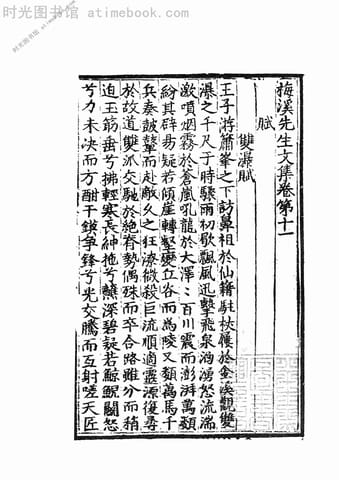 时光图书馆 - atimebook.com
梅溪先生文集卷第十一
賦
雙瀑賦
王子游簫峯之下訪鼻祖於仙籍駐杖屨於金溪觀雙
瀑之千尺于時驟雨初歇飄風迅擊飛泉洶湧怒流湍
激噴烟霧於蒼嵐吼龍於大澤〻百川震而澎湃萬頹
紛其辟易疑若傾崖轉壑變立谷而為陵又類萬馬千
兵奏鼓鼙而赴敵久之狂潦微殺巨流順適靈源復尋
於故道雙派交馳於絶脊勢偶殊而卒合路雖分而稍
迫玉筯垂兮拂輕寒長紳拖兮蘸深碧疑若鯨鯢鬭怒
兮力未決而方酣干鏌争鋒兮光交騰而互射嗟天匠